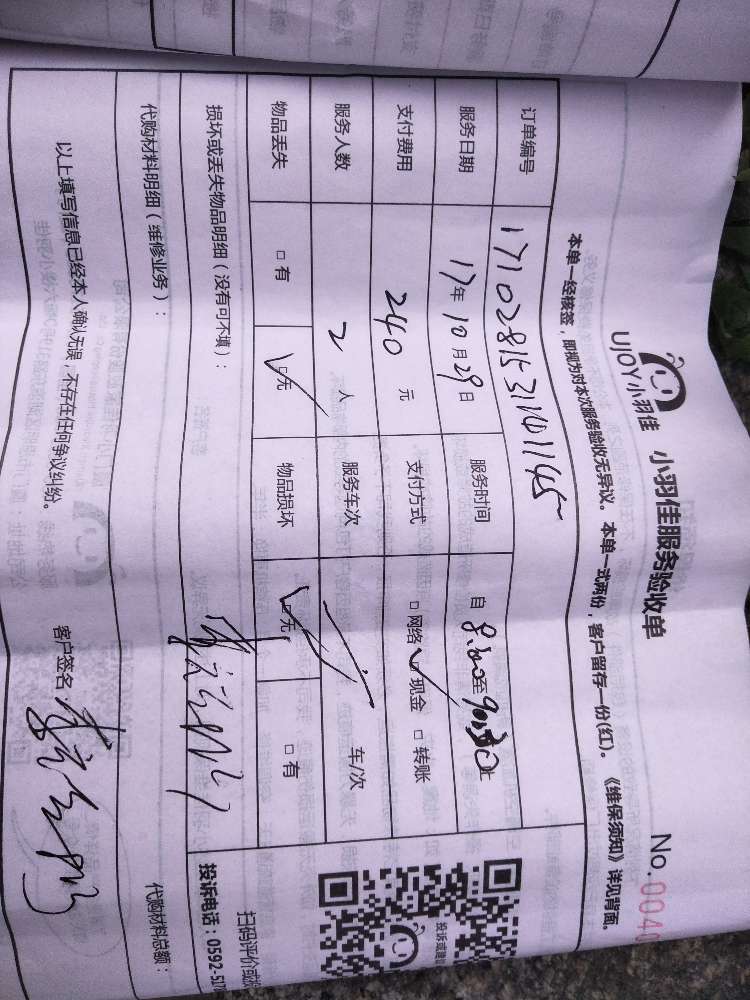 UJOY小羽佳 小羽佳服务验收单
No.0040
本单一经核签，即视为对本次服务验收无异议。本单一式两份，客户留存一份(红)。《维保须知》详见背面。
订单编号 171028153111401145
服务日期 17年10月29日 服务时间 自8:30至
支付费用 240元 支付方式 □网络 ✓现金 □转账
服务人数 2人 服务车次 车/次
物品丢失 □有 □无 物品损坏 □无 □有
损坏或丢失物品明细（没有可不填）：
代购材料明细（维修业务）： 代购材料总额：
以上填写信息已经本人确认无误，不存在任何争议纠纷。 客户签名：
投诉或建
扫码评价或投
投诉电话：0592-5120